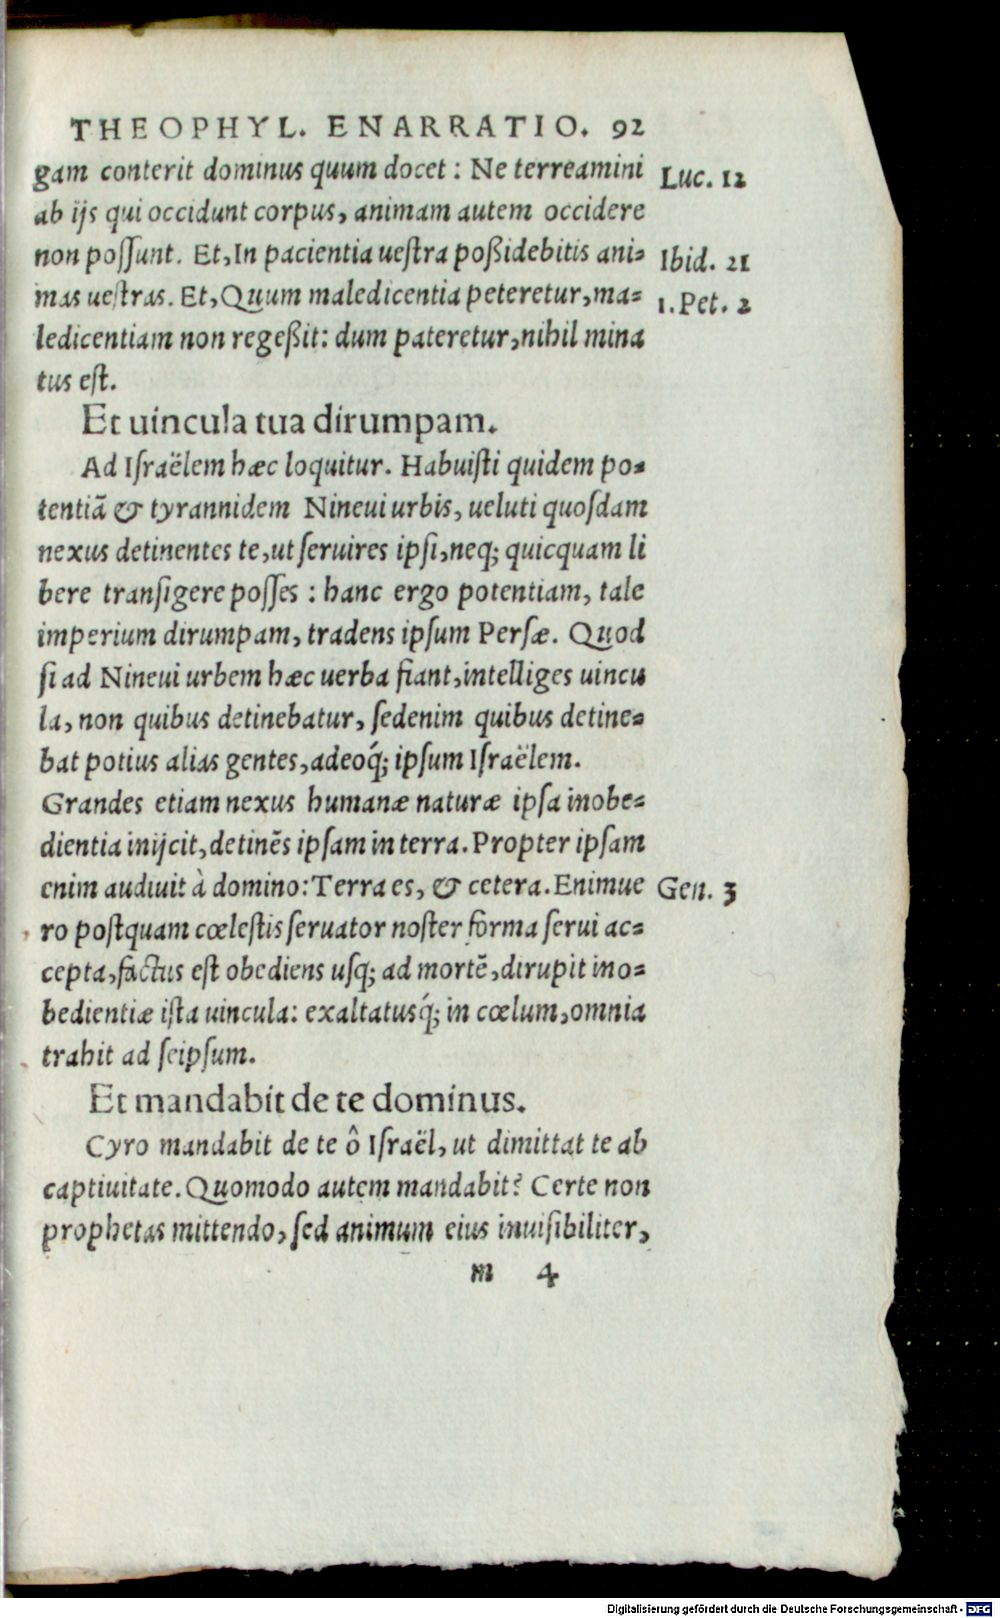 THEOPHYL. ENARRATIO. 92
gam conterit dominus quum docet : Ne terreamini
Luc. 12
ab ijs qui occidunt corpus, animam autem occidere
non possunt. Et, In pacientia uestra poßidebitis ani=
Ibid. 21
mas uestras. Et, Quum maledicentia peteretur, ma=
1. Pet. 2
ledicentiam non regeßit: dum pateretur, nihil mina
tus est.
Et uincula tua dirumpam.
Ad Israëlem hæc loquitur. Habuisti quidem po=
tentiã & tyrannidem Nineui urbis, ueluti quosdam
nexus detinentes te, ut seruires ipsi, neq; quicquam li
bere transigere posses : hanc ergo potentiam, tale
imperium dirumpam, tradens ipsum Persæ. Quod
si ad Nineui urbem hæc uerba fiant, intelliges uincu
la, non quibus detinebatur, sedenim quibus detine=
bat potius alias gentes, adeoq́; ipsum Israëlem.
Grandes etiam nexus humanæ naturæ ipsa inobe=
dientia inijcit, detinẽs ipsam in terra. Propter ipsam
enim audiuit à domino: Terra es, & cetera. Enimue
Gen. 3
ro postquam cœlestis seruator noster forma serui ac=
cepta, factus est obediens usq; ad mortẽ, dirupit ino=
bedientiæ ista uincula: exaltatusq́; in cœlum, omnia
trahit ad seipsum.
Et mandabit de te dominus.
Cyro mandabit de te ô Israël, ut dimittat te ab
captiuitate. Quomodo autem mandabit? Certe non
prophetas mittendo, sed animum eius inuisibiliter,
m 4
Digitalisierung gefördert durch die Deutsche Forschungsgemeinschaft - DFG